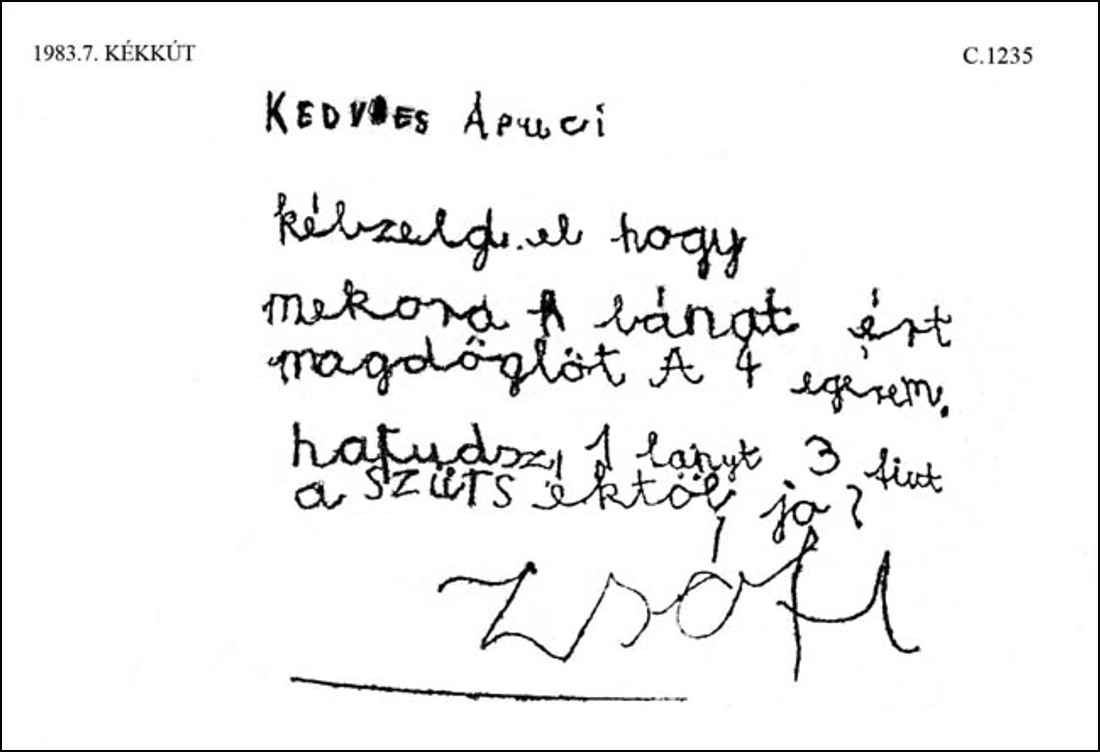 1983.7. KÉKKÚT
C.1235
KEDVES Apuci
kébzeld el hogy
mekora A bánat ért
magdőglöt A 4 egérem.
hafudsz, 1 lányt 3 fiut
a SZÜTS éktől, jó?
Zsófi